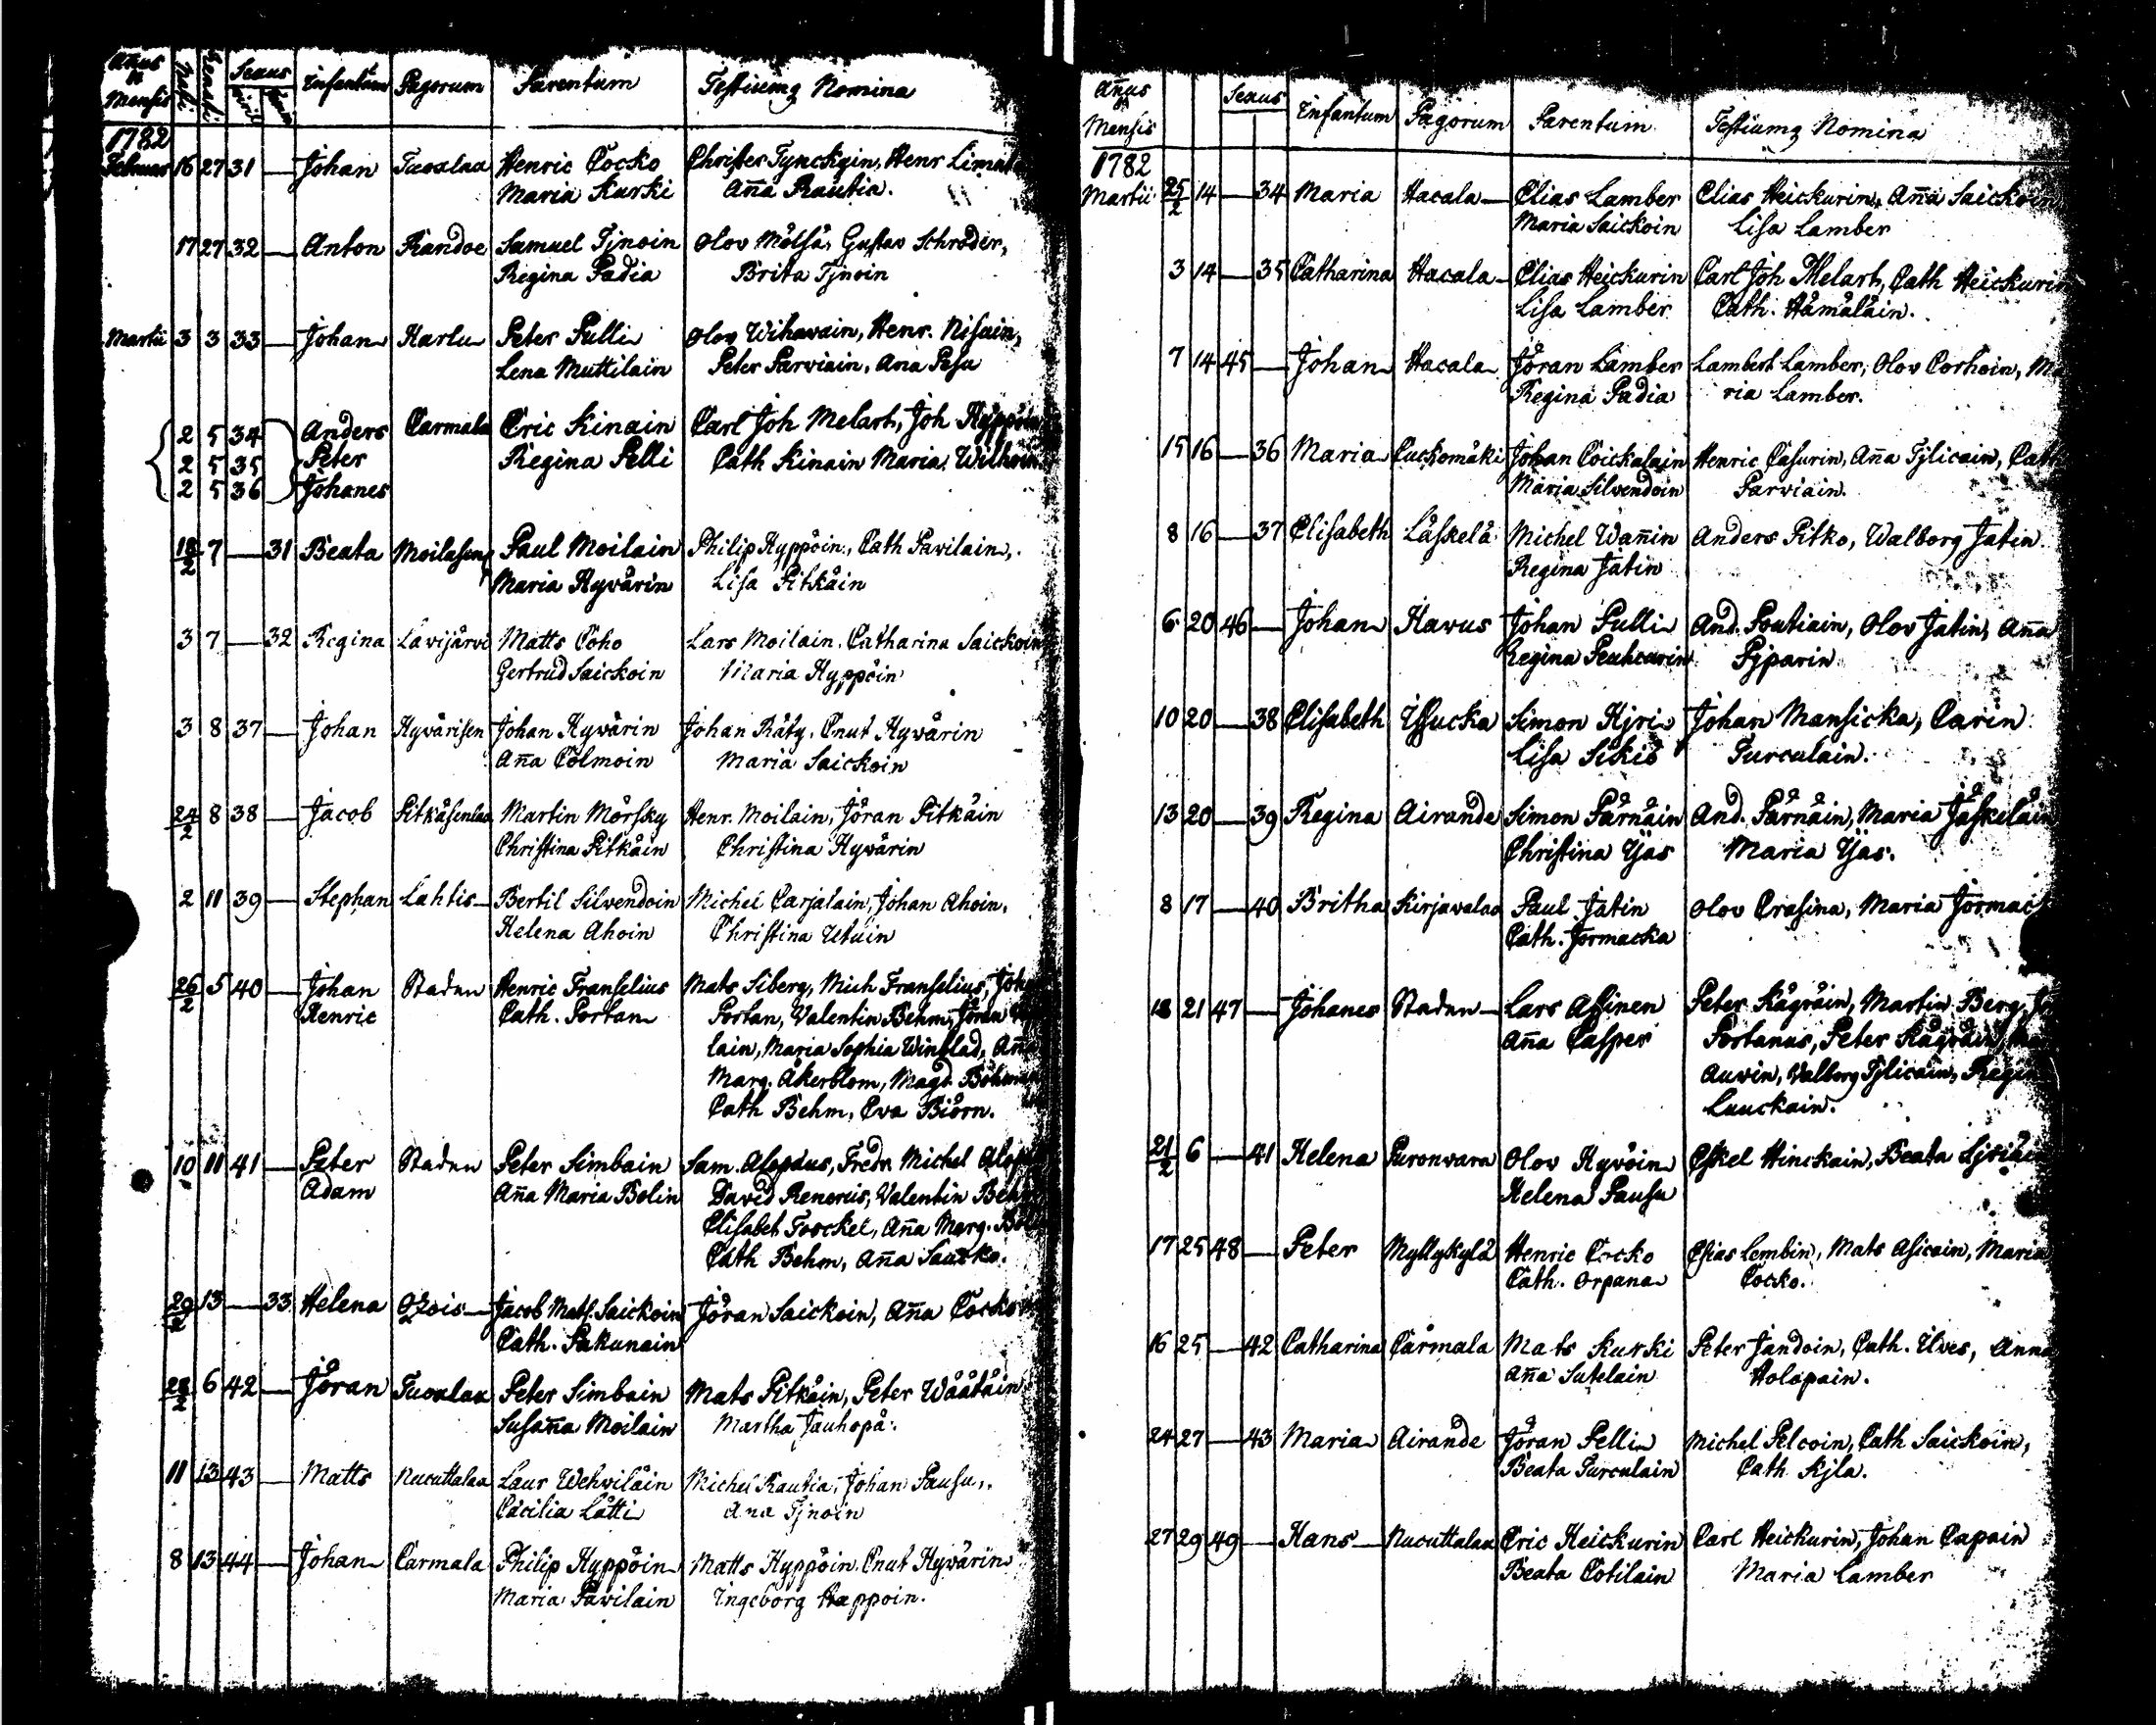 Añus & Mensis Nati Renati Sexus Viril Femin Infantum Pagorum Parentum Testiumq Nomina
1782
Februar 16 27 31 — Johan Tuoxlax Henric Cocko Christer Tynckyin, Henr Limat
Maria Kurki Aña Rautia.
17 27 32 — Anton Randoe Samuel Tjnoin Olov Mötsä, Gustav Schröder,
Regina Padia Brita Tjnoin
Martii 3 3 33 — Johan Harlu Peter Pulli Olov Wihavain, Henr. Nisuin,
Lena Muttilain Peter Parviain, Ana Pesu
2 5 34 Anders Carmala Eric Kinain Carl Joh Melart, Joh Hyppöin
2 5 35 Peter Regina Pelli Cath Kinain Maria
2 5 36 Johanes
18/2 7 — 31 Beata Moilasens Paul Moilain Philip Hyppöin, Cath Pavilain,
Maria Hyvärin Lisa Pitkäin
3 7 — 32 Regina Lavijärvi Matts Coho Lars Moilain, Catharina Saickoin
Gertrud Saickoin Maria Hyppöin
3 8 37 — Johan Hyvärisen Johan Hyvärin Johan Räty, Cnut Hyvärin
Aña Colmoin Maria Saickoin
24/2 8 38 — Jacob Pitkäsenlax Martin Mörsky Henr. Moilain, Jöran Pitkäin
Christina Pitkäin Christina Hyvärin
2 11 39 — Stephan Lahtis Bertil Silvendoin Michel Carjalain, Johan Ahoin,
Helena Ahoin Christina Utuin
26/2 5 40 — Johan Staden Henric Franselius Mats Siberg, Mich Franselius, Joh
Henric Cath. Portan Portan, Valentin Behm, Jöran
lain, Maria Sophia Winblad, Aña
Marg. Akerblom, Magd. Böhm
Cath Behm, Eva Biörn.
10 11 41 — Peter Staden Peter Simbain Sam. Alopæus, Fredr. Michel Alop
Adam Aña Maria Bolin David Renerus, Valentin Behm
Elisabet Forckel, Aña Marg. Bol
Cath Behm, Aña Sauxko.
29/2 13 — 33 Helena Ozois Jacob Mats. Saickoin Jöran Saickoin, Aña Cocko
Cath. Pakunain
28/2 6 42 — Jöran Tuoxlax Peter Simbain Mats Pitkäin, Peter Wäätäin
Susaña Moilain Martha Jauhopä.
11 13 43 — Matts Nucuttalax Laur Wehviläin Michel Rautia, Johan Pausu,
Cäcilia Lätti Ana Tjnoin
8 13 44 — Johan Carmala Philip Hyppöin Matts Hyppöin, Cnut Hyvärin
Maria Pavilain Ingeborg Happoin.
Añus & Mensis Sexus Infantum Pagorum Parentum Testiumq Nomina
1782
Martii 25/2 14 — 34 Maria Hacala Elias Lamber Elias Heickurin, Aña Saickoin
Maria Saickoin Lisa Lamber
3 14 — 35 Catharina Hacala Elias Heickurin Carl Joh Melart, Cath Heickurin
Lisa Lamber Cath. Hämäläin.
7 14 45 — Johan Hacala Jöran Lamber Lambert Lamber, Olov Corhoin, Ma
Regina Padia ria Lamber.
15 16 — 36 Maria Cuckomäki Johan Coickalain Henric Casurin, Aña Tjlicain, Cath
Maria Silvendoin Parviain.
8 16 — 37 Elisabeth Läskelä Michel Wañin Anders Pitko, Walborg Jatin
Regina Jatin
6 20 46 — Johan Havus Johan Pulli And. Poutiain, Olov Jatin, Aña
Regina Peuhcurin Pjparin
10 20 — 38 Elisabeth Yssucka Simon Hjri Johan Mansicka, Carin
Lisa Sikiö Turculain.
13 20 — 39 Regina Airande Simon Pärnäin And. Pärnäin, Maria Jäskeläin
Christina Yjäs Maria Yjäs.
8 17 — 40 Britha Kirjavalax Paul Jatin Olov Erasina, Maria Jormack
Cath. Jormacka
18 21 47 — Johanes Staden Lars Assinen Peter Kägräin, Martin Berg, Jo
Aña Casper Portanus, Peter Kägräin,
Auvin, Valborg Tjlicain, Regin
Luuckain.
21/2 6 — 41 Helena Puronvara Olov Hyvöin Eskel Hinckain, Beata
Helena Pausu
17 25 48 — Peter Myllykylä Henric Cocko Esias Lembin, Mats Asicain, Maria
Cath. Orpana Cocko.
16 25 — 42 Catharina Carmala Mats Kurki Peter Jandoin, Cath. Ilves, Anna
Aña Sutelain Holopain.
24 27 — 43 Maria Airande Jöran Pelli Michel Pelcoin, Cath Saickoin,
Beata Turculain Cath Kjla.
27 29 49 — Hans Nucuttalax Eric Heickurin Carl Heickurin, Johan Capain
Beata Cotilain Maria Lamber